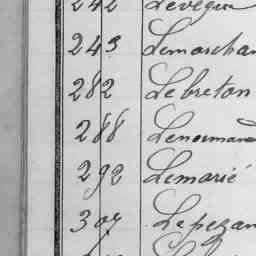 242 Leveque
243 Lemarchan
282 Lebreton
288 Lenormand
292 Lemarié
307 Lepezan